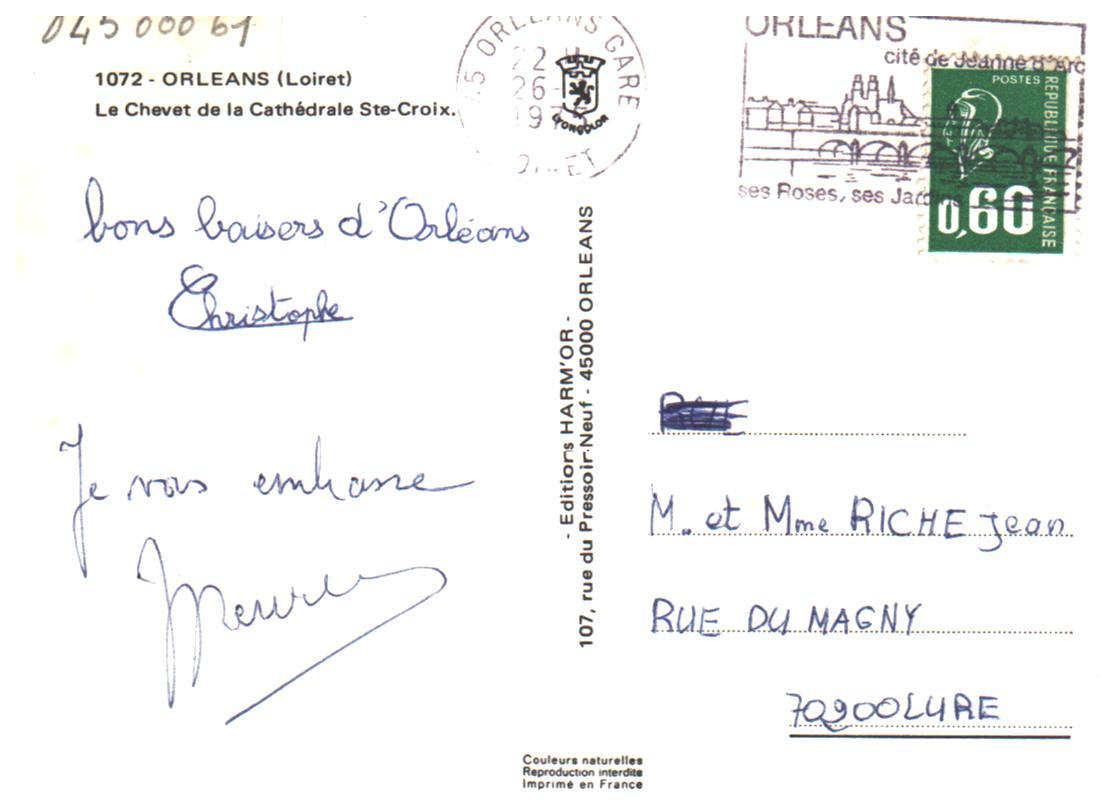 045 000 61
1072 - ORLEANS (Loiret)
Le Chevet de la Cathédrale Ste-Croix.
45 ORLEANS GARE
22 H
26 -
197
LYONCOLOR
ORLEANS
cité de Jeanne d'Arc
ses Roses, ses Jardins
POSTES
REPUBLIQUE FRANÇAISE
0,60
bons baisers d'Orléans
Christophe
Je vous embrasse
- Editions HARM'OR -
107, rue du Pressoir-Neuf - 45000 ORLEANS
M. et Mme RICHE Jean
RUE DU MAGNY
70200 LURE
Couleurs naturelles
Reproduction interdite
Imprimé en France